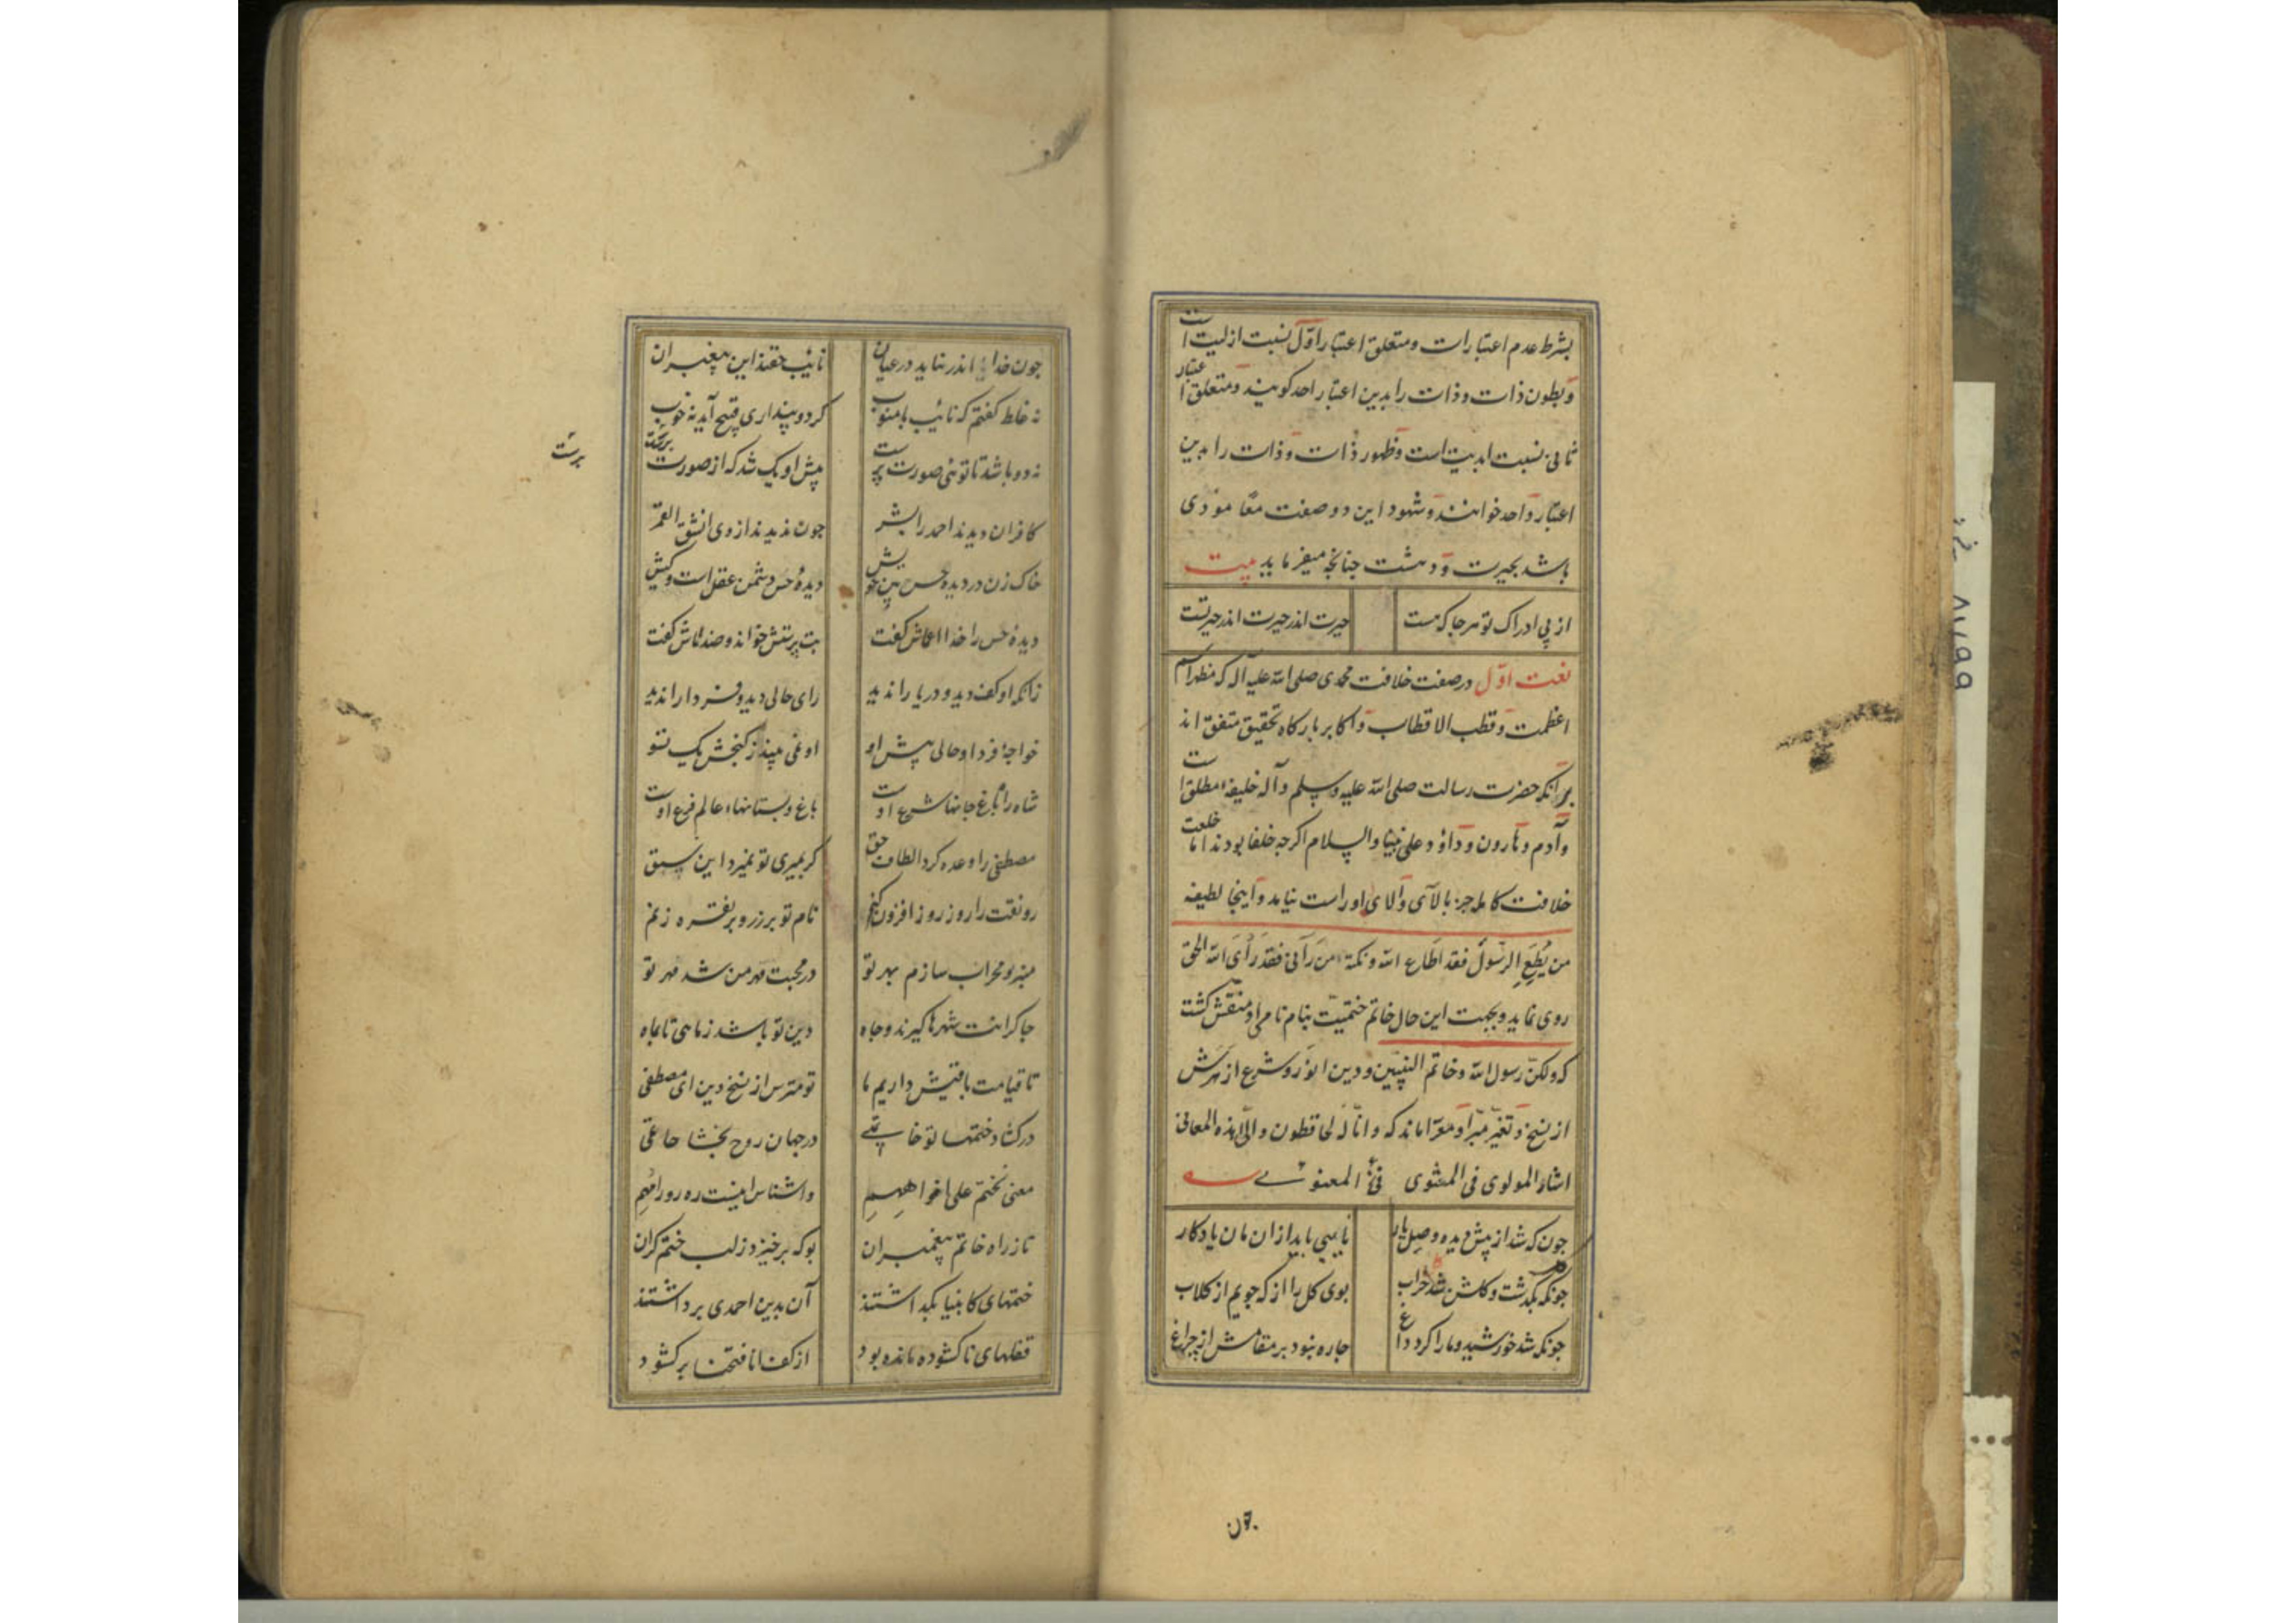 بشرط عدم اعتبارات ومتعلق اعتبار اوّل نسبت ازلیت است
و بطون ذات وذات را بدین اعتبار احد کویند ومتعلق اعتبار
ثانی نسبت ابدیت است وظهور ذات وذات را بدین
اعتبار واحد خوانند وشهود این دو صفت معًا مودی
باشد بحیرت ودهشت جنانجه میفرماید بیت
از پی ادراک تو هرجا که هست حیرت اندر حیرت اندر حیرتست
نعت اوّل در صفت خلافت محمدی صلی الله علیه آله که مظهر اسم
اعظمت وقطب الاقطاب واکابر بارکاه تحقیق متفق اند
برانکه حضرت رسالت صلی الله علیه وسلم وآله خلیفهٔ مطلق است
وآدم وهارون وداؤد علی نبینا والسلام اکرجه خلفا بودند اما خلعت
خلافت کامله جز ببالای والای او راست نیامد واینجا لطیفه
من یُطِعِ الرّسول فقد اَطاع الله ونکتهٔ من رَآنی فقد رَأی الله الحق
روی نماید وبجهت این حال خاتم ختمیّت بنام نامی او منقش کشت
که ولکن رسول الله وخاتم النبیّین ودین انور وشرع ازهرش
از نسخ وتغیّر مبّرا ومعرّا ماند که وانّا له لحافظون والی هذه المعانی
اشار المولوی فی المثنوی المعنوی
جون که شد از پیش دیده وصل یار نایبی باید ازان مان یادکار
جونکه کل بکذشت وکلشن شد خراب بوی کل را از که جویم از کلاب
جونکه شد خورشید ومارا کرد داغ جاره نبود بر مقامش از چراغ
جون
جون خدا اندر نیاید در عیان نائب حقند این پیغمبران
نه غلط کفتم که نائب با منوب کر دو پنداری قبیح آید نه خوب
نه دو باشد تا توئی صورت پرست پیش او یک شد که از صورت برست
برست
کافران دیدند احمد را بشر جون ندیدند از وی انشق القمر
خاک زن در دیده حس بین خویش دیدهٔ حس دشمن عقل است وکیش
دیدهٔ حس را خدا اعماش کفت بت پرستش خواند وضد ماش کفت
زانکه او کف دید و دریا را ندید زای حالی دید وفردا را ندید
خواجهٔ فردا وحالی پیش او او نمی بیند ز کنجش یک تسو
شاه را باغ جانها شرع اوست باغ وبستانهاء عالم فرع اوست
مصطفی را وعده کرد الطاف حق کر بمیری تو نمیرد این سبق
رونقت را روز روز افزون کنم نام تو بر زر وبر نقره زنم
منبر ومحراب سازم بهر تو در محبت قهر من شد قهر تو
جاکرانت شهرها کیرند وجاه دین تو باشد ز ماهی تا بماه
تا قیامت باقیش داریم ما تو مترس از نسخ دین ای مصطفی
در کشاد ختمها تو خاتمی در جهان روح بخشا حاتمی
معنی نختم علی افواههم واشناس اینست ره رو را مهم
تا ز راه خاتم پیغمبران بوکه برخیزد ز لب ختم کران
ختمهای کانبیا بکذاشتند آن بدین احمدی برداشتند
قفلهای ناکشوده مانده بود از کف انا فتحنا برکشود